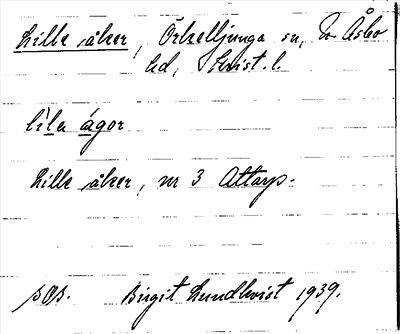 Lille åker, Örkelljunga sn, N. Åsbo
hd, Krist. l.
lìlɐ ágɔr
Lille åker, nr 3 Attarp.
SOS. Birgit Lundkvist 1939.